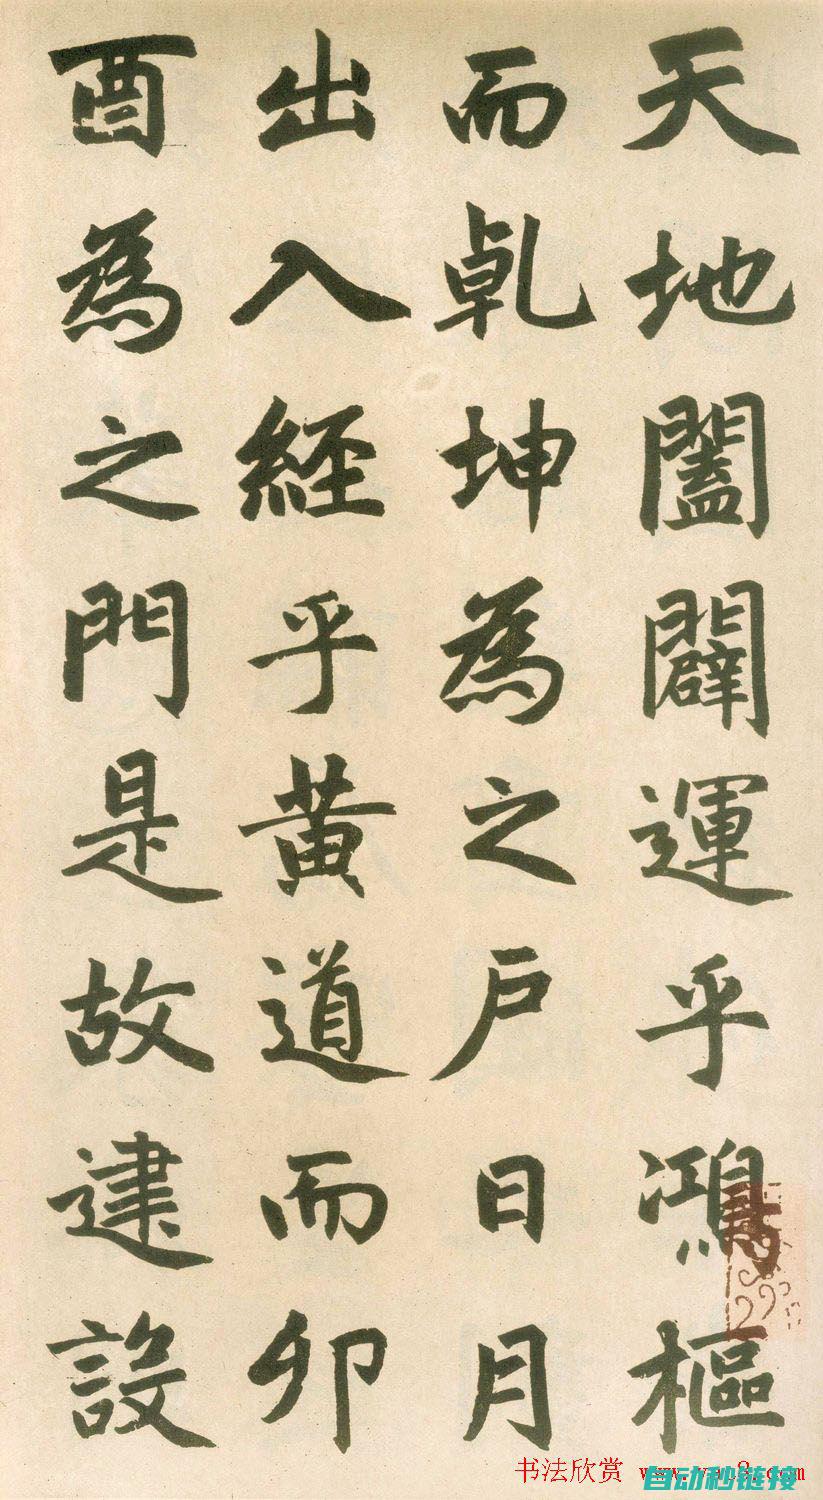 天地闔闢運乎鴻樞
而乹坤為之戶日月
出入經乎黃道而卯
酉為之門是故建設
书法欣赏
自动秒链接